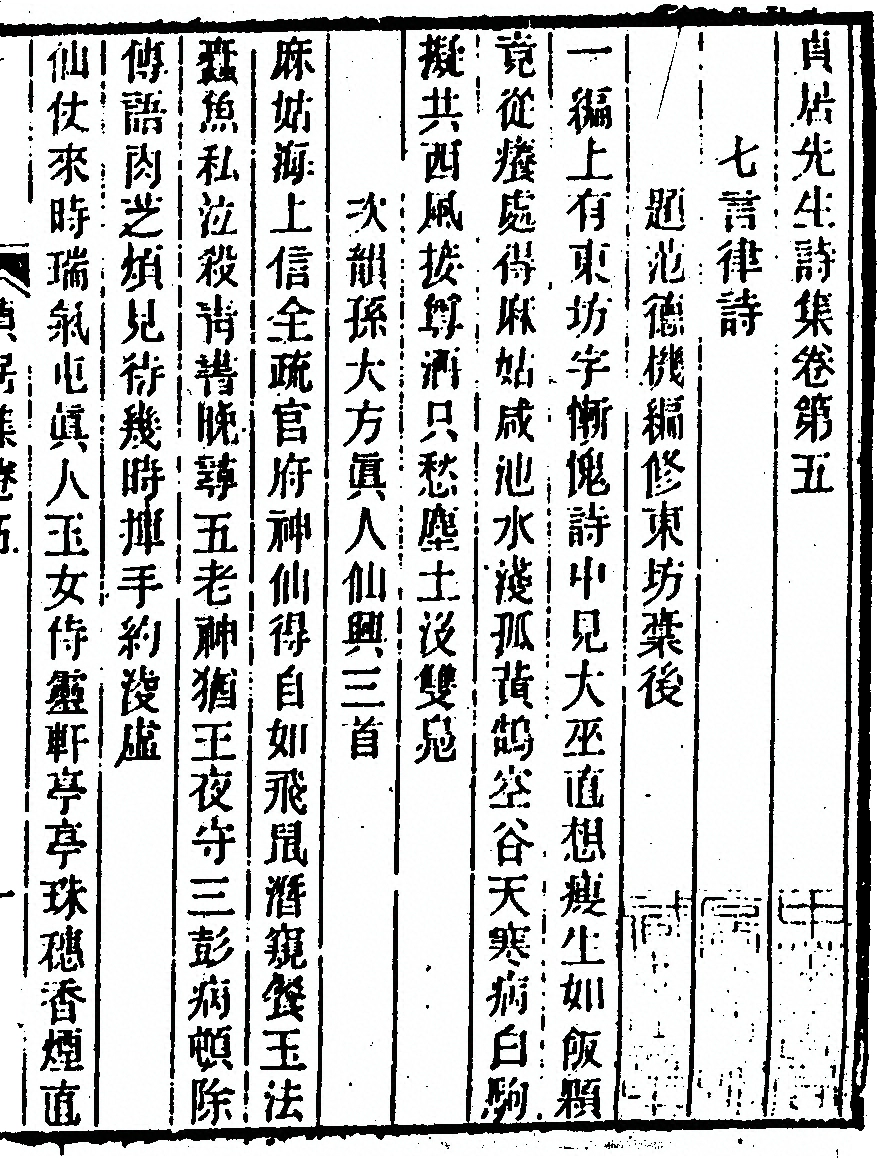 貞居先生詩集卷第五
七言律詩
題范德機編修東坊藁後
一編上有東坊字慚愧詩中見大巫直想瘦生如飯顆
竟從癢處得麻姑咸池水淺孤黃鵠空谷天寒病白駒
擬共西風接尊酒只愁塵土沒雙鳧
次韻孫大方眞人仙興三首
麻姑海上信全疏官府神仙得自如飛鼠潛窺餐玉法
蠹魚私泣殺青書晚尋五老神猶王夜守三彭病頓除
傳語肉芝煩見待幾時揮手約淩虛
仙仗來時瑞氣屯眞人玉女侍靈軒亭亭珠穗香煙直
貞居集卷五
一